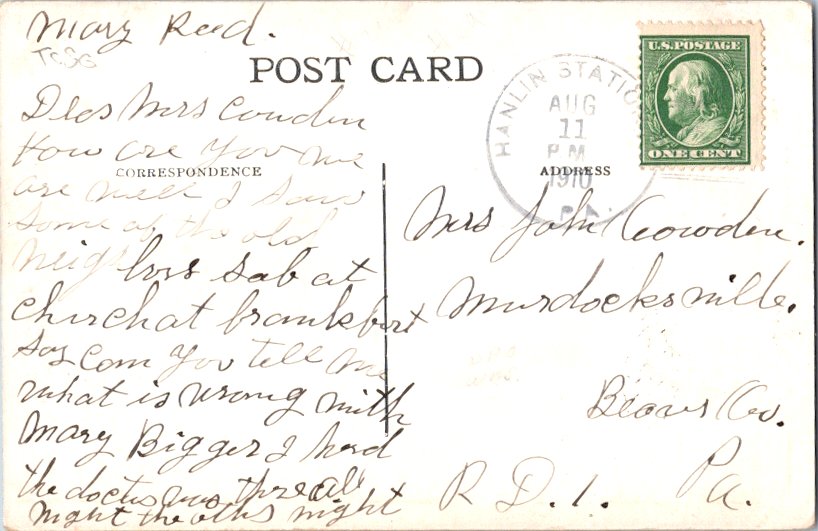 Mary Reed.
TCSG
POST CARD
Dear Mrs Cowden
How are you we
CORRESPONDENCE
are well I saw
some of the old
neighbors sab at
chirchat frankfort
say com you tell me
what is wrong with
Mary Bigger I herd
the doctor was there all
night the other night
HANLIN STATION
AUG
11
P M
1910
PA.
U.S. POSTAGE
ONE CENT
ADDRESS
Mrs John Cowden.
Murdocksville.
Beaver Co.
R. D. 1. Pa.